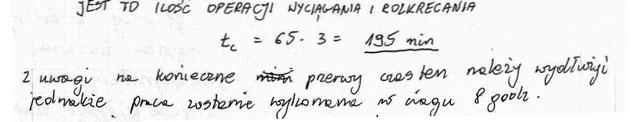 JEST TO ILOŚĆ OPERACJI WYCIĄGANIA I ROZKRĘCANIA
tc = 65 · 3 = 195 min
Z uwagi na konieczne przerwy czas ten należy wydłużyć
jednakże praca zostanie wykonana w ciągu 8 godz.